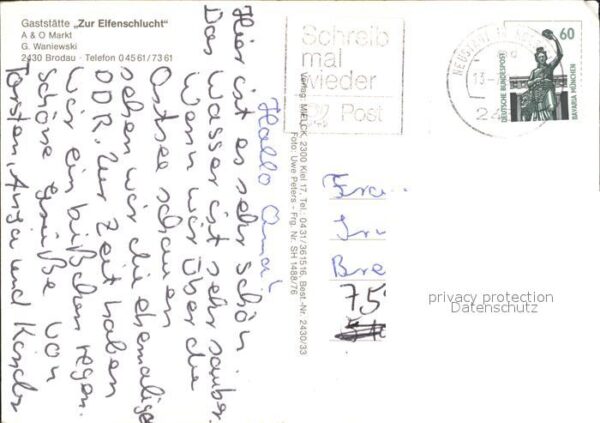 Gaststätte „Zur Elfenschlucht"
A & O Markt
G. Waniewski
2430 Brodau · Telefon 04561/7361
Hallo Oma!
Hier ist es sehr schön
Das Wasser ist sehr sauber.
Wenn wir über die
Ostsee schauen
sehen wir die ehemalige
DDR. Zur Zeit haben
wir ein bißchen regen.
Schöne grüße von
Torsten, Anja und
Verlag MIELCK, 2300 Kiel 17, Tel. 0431/361516, Best.-Nr. 2430/33
Foto: Uwe Peters - Frg. Nr. SH 1488/76
Schreib
mal
wieder
Post
NEUSTADT
13
60
DEUTSCHE BUNDESPOST
BAVARIA MÜNCHEN
Frau
Bre
75
privacy protection
Datenschutz